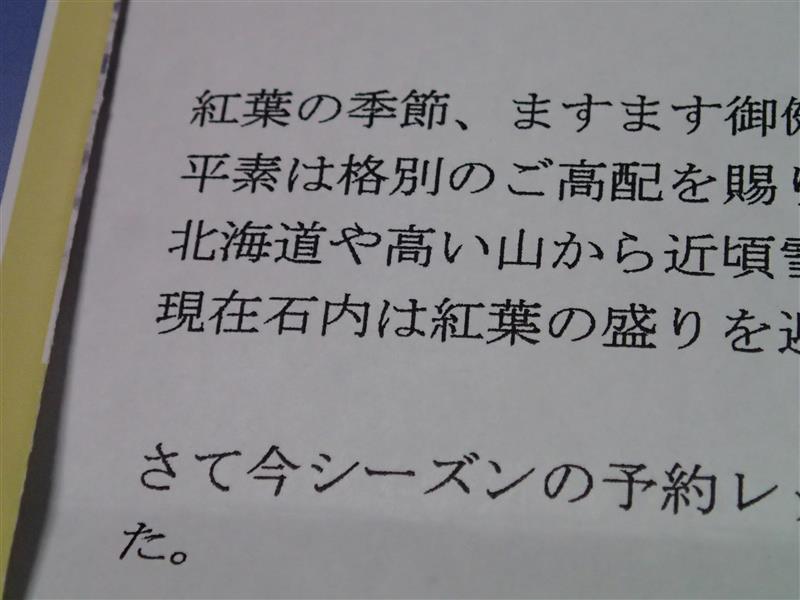 紅葉の季節、ますます御
平素は格別のご高配を賜り
北海道や高い山から近頃雪
現在石内は紅葉の盛りを
さて今シーズンの予約レ
た。